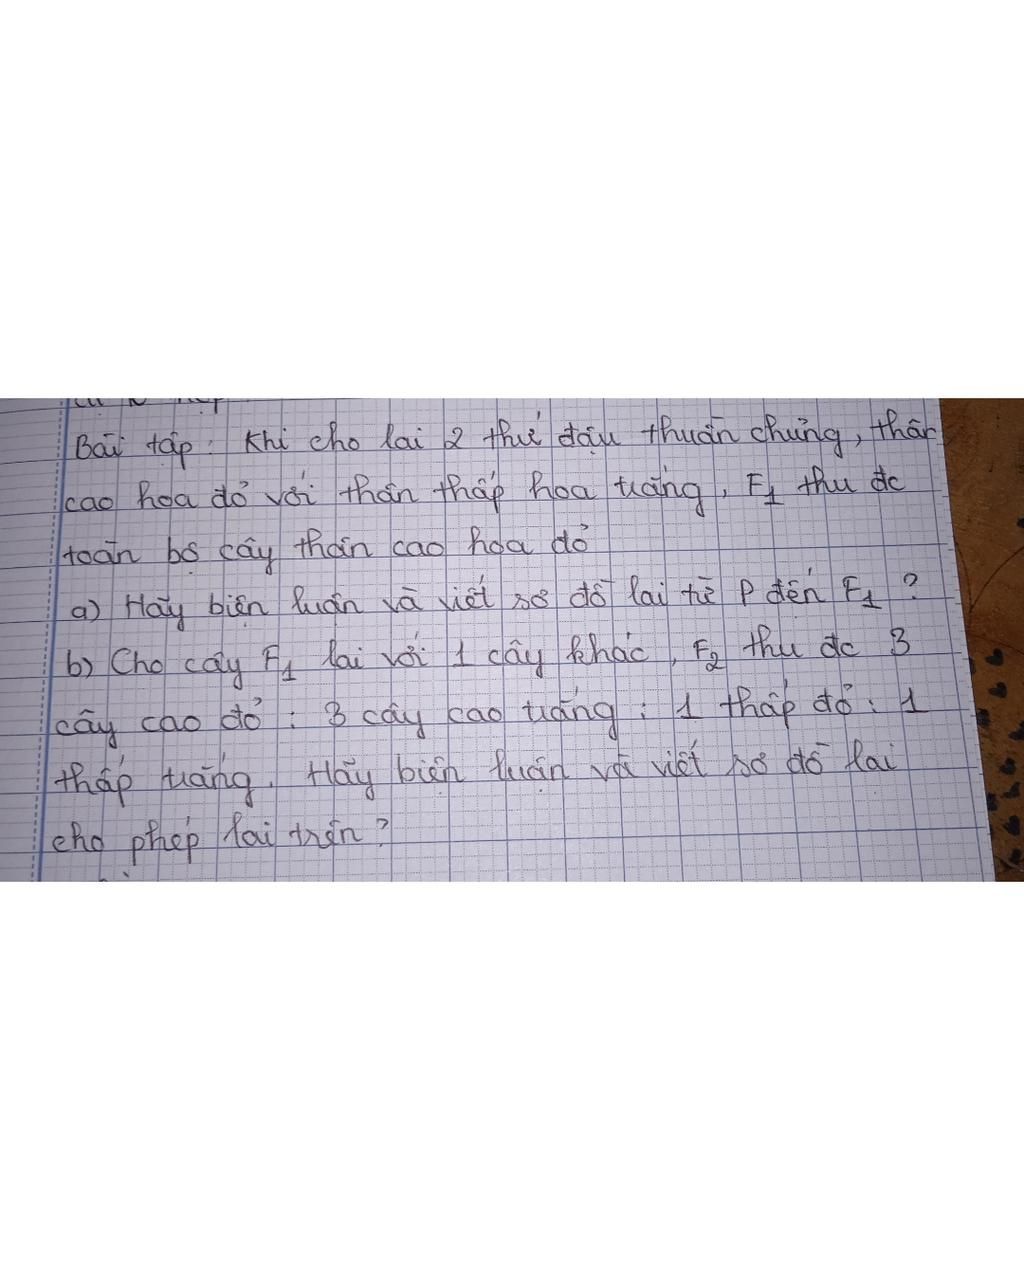 Bài tập: Khi cho lai 2 thứ đậu thuần chủng, thân
cao hoa đỏ với thân thấp hoa trắng, F1 thu đc
toàn bộ cây thân cao hoa đỏ
a) Hãy biện luận và viết sơ đồ lai từ P đến F1?
b) Cho cây F1 lai với 1 cây khác, F2 thu đc 3
cây cao đỏ : 3 cây cao trắng : 1 thấp đỏ : 1
thấp trắng. Hãy biện luận và viết sơ đồ lai
cho phép lai trên?